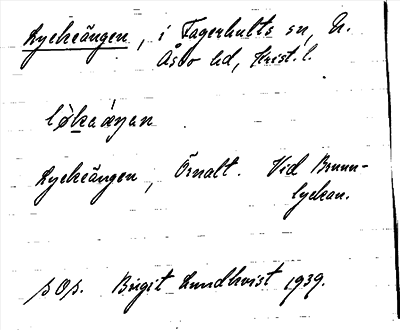 Lyckeängen, i Fagerhults sn, N.
Åsbo hd, Krist. l.
Lyckeängen, Örnalt. Vid Brunn-
lyckan.
pOp. Birgit Lundkvist 1939.